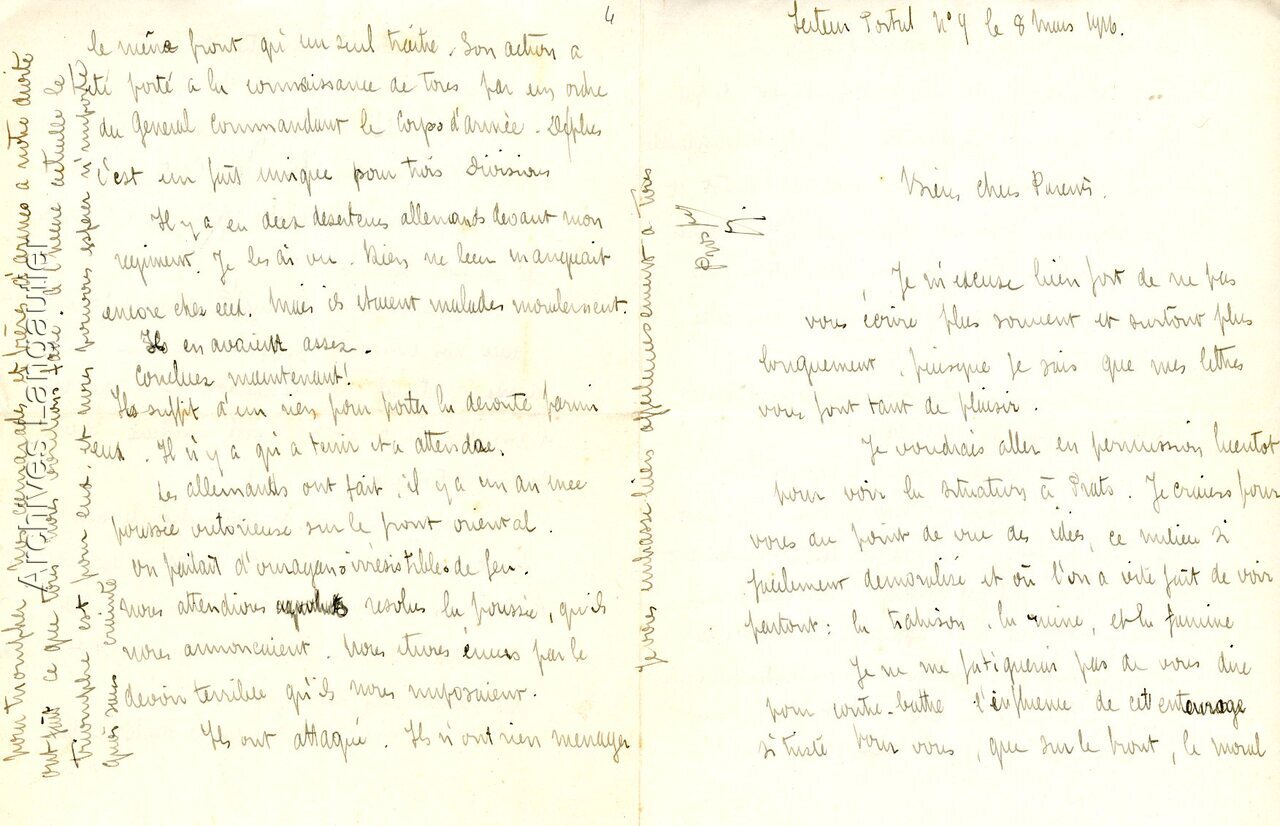 Secteur Postal N° 9 le 8 Mars 1916.
Biens chers Parents.
Je m'excuse bien fort de ne pas
vous écrire plus souvent et surtout plus
longuement, puisque je sais que mes lettres
vous font tant de plaisir.
Je voudrais aller en permission bientot
pour voir la situation à Prats. Je crains pour
vous au point de vue des idées, ce milieu si
facilement démoralisé et où l'on a vite fait de voir
partout: la trahison, la ruine, et la famine
Je ne me fatiguerai pas de vous dire
pour contre-battre l'influence de cet entourage
si triste pour vous, que sur le front, le moral
4
le même front qu'un seul traitre. Son action a
été porté a la connaissance de tous par un ordre
du General Commandant le Corps d'armée. De plus
c'est un fait unique pour trois divisions
Il y a eu deux deserteurs allemands devant mon
regiment. Je les ai vu. Rien ne leur manquait
encore chez eux. Mais ils etaient malades moralement.
Ils en avaient assez.
Concluez maintenant!
Il suffit d'un rien pour porter la deroute parmi
eux. Il n'y a qu'a tenir et a attendre.
Les allemands ont fait, il y a un an une
poussée victorieuse sur le front oriental.
On parlait d'ouragans irrésistibles de feu.
Nous attendions resolus la poussée, qu'ils
nous annoncaient. Nous etions émus par le
devoir terrible qu'ils nous imposaient.
Ils ont attaqué. Ils n'ont rien menager
pour triompher. Nos camarades et frères d'armes a notre droite
ont fait ce que tous nous voulions faire. A l'heure actuelle le
triomphe est pour eux, et nous pouvons esperer n'importe
quoi sans crainte
Je vous embrasse bien affectueusement a tous
Archives Lanoaulier